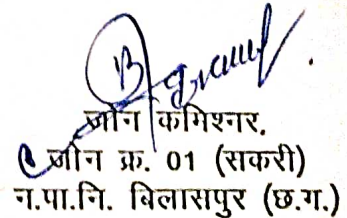 जोन कमिश्नर,
जोन क्र. 01 (सकरी)
न.पा.नि. बिलासपुर (छ.ग.)